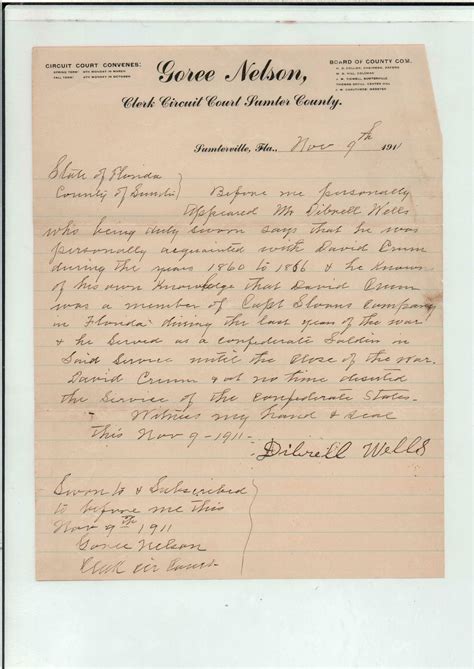 CIRCUIT COURT CONVENES:
SPRING TERM: 5TH MONDAY IN MARCH
FALL TERM: 5TH MONDAY IN OCTOBER
BOARD OF COUNTY COM.
Goree Nelson,
Clerk Circuit Court Sumter County.
Sumterville, Fla., Nov 9th 1911
State of Florida
County of Sumter Before me personally
Appeared Mr Dibrell Wells
who being duly sworn says that he was
personally acquainted with David Crum
during the years 1860 to 1866 & he knows
of his own Knowledge that David Crum
was a member of Capt Sloans Company
in Florida during the last year of the war
& he Served as a Confederate Soldier in
Said Service until the Close of the war
David Crum & at no time deserted
the Service of the Confederate States.
Witness my hand & seal
this Nov 9 - 1911 -
Dibrell Wells
Sworn to & Subscribed
to before me this
Nov 9th 1911
Goree Nelson
Clerk Cir Court